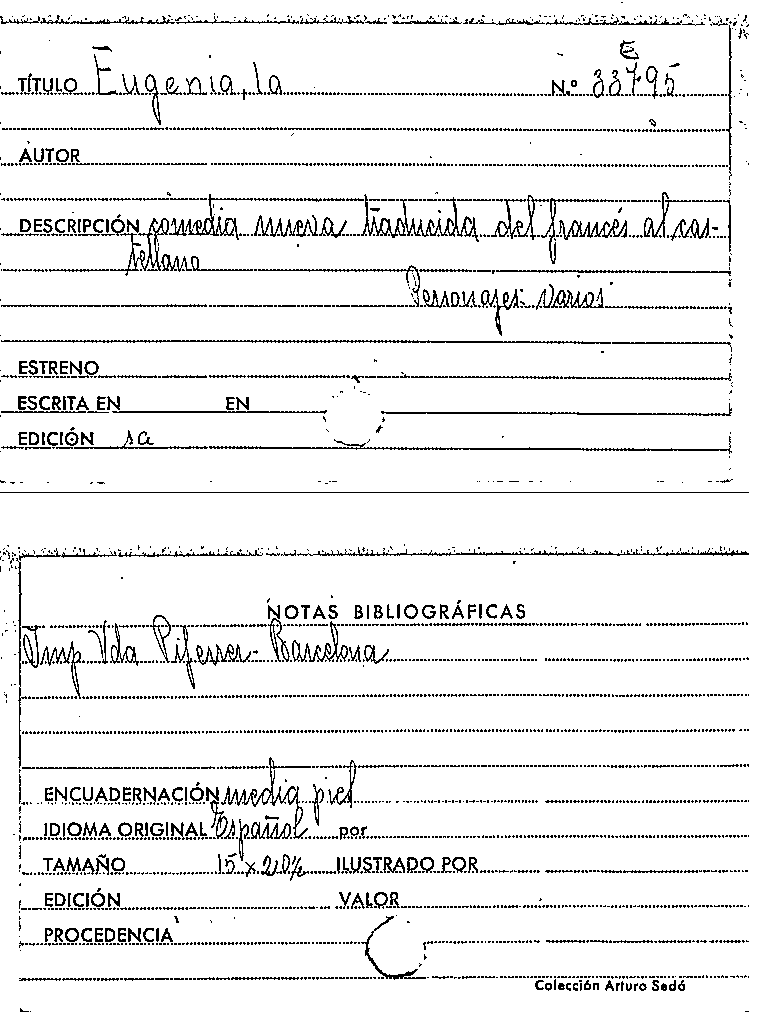 E
TÍTULO Eugenia, la N.º 33795
AUTOR
DESCRIPCIÓN comedia nueva traducida del francés al cas-
tellano
Personajes: varios
ESTRENO
ESCRITA EN EN
EDICIÓN sa
NOTAS BIBLIOGRÁFICAS
Imp Vda Piferrer - Barcelona
ENCUADERNACIÓN media piel
IDIOMA ORIGINAL Español por
TAMAÑO 15 x 20½ ILUSTRADO POR
EDICIÓN VALOR
PROCEDENCIA
Colección Arturo Sedó